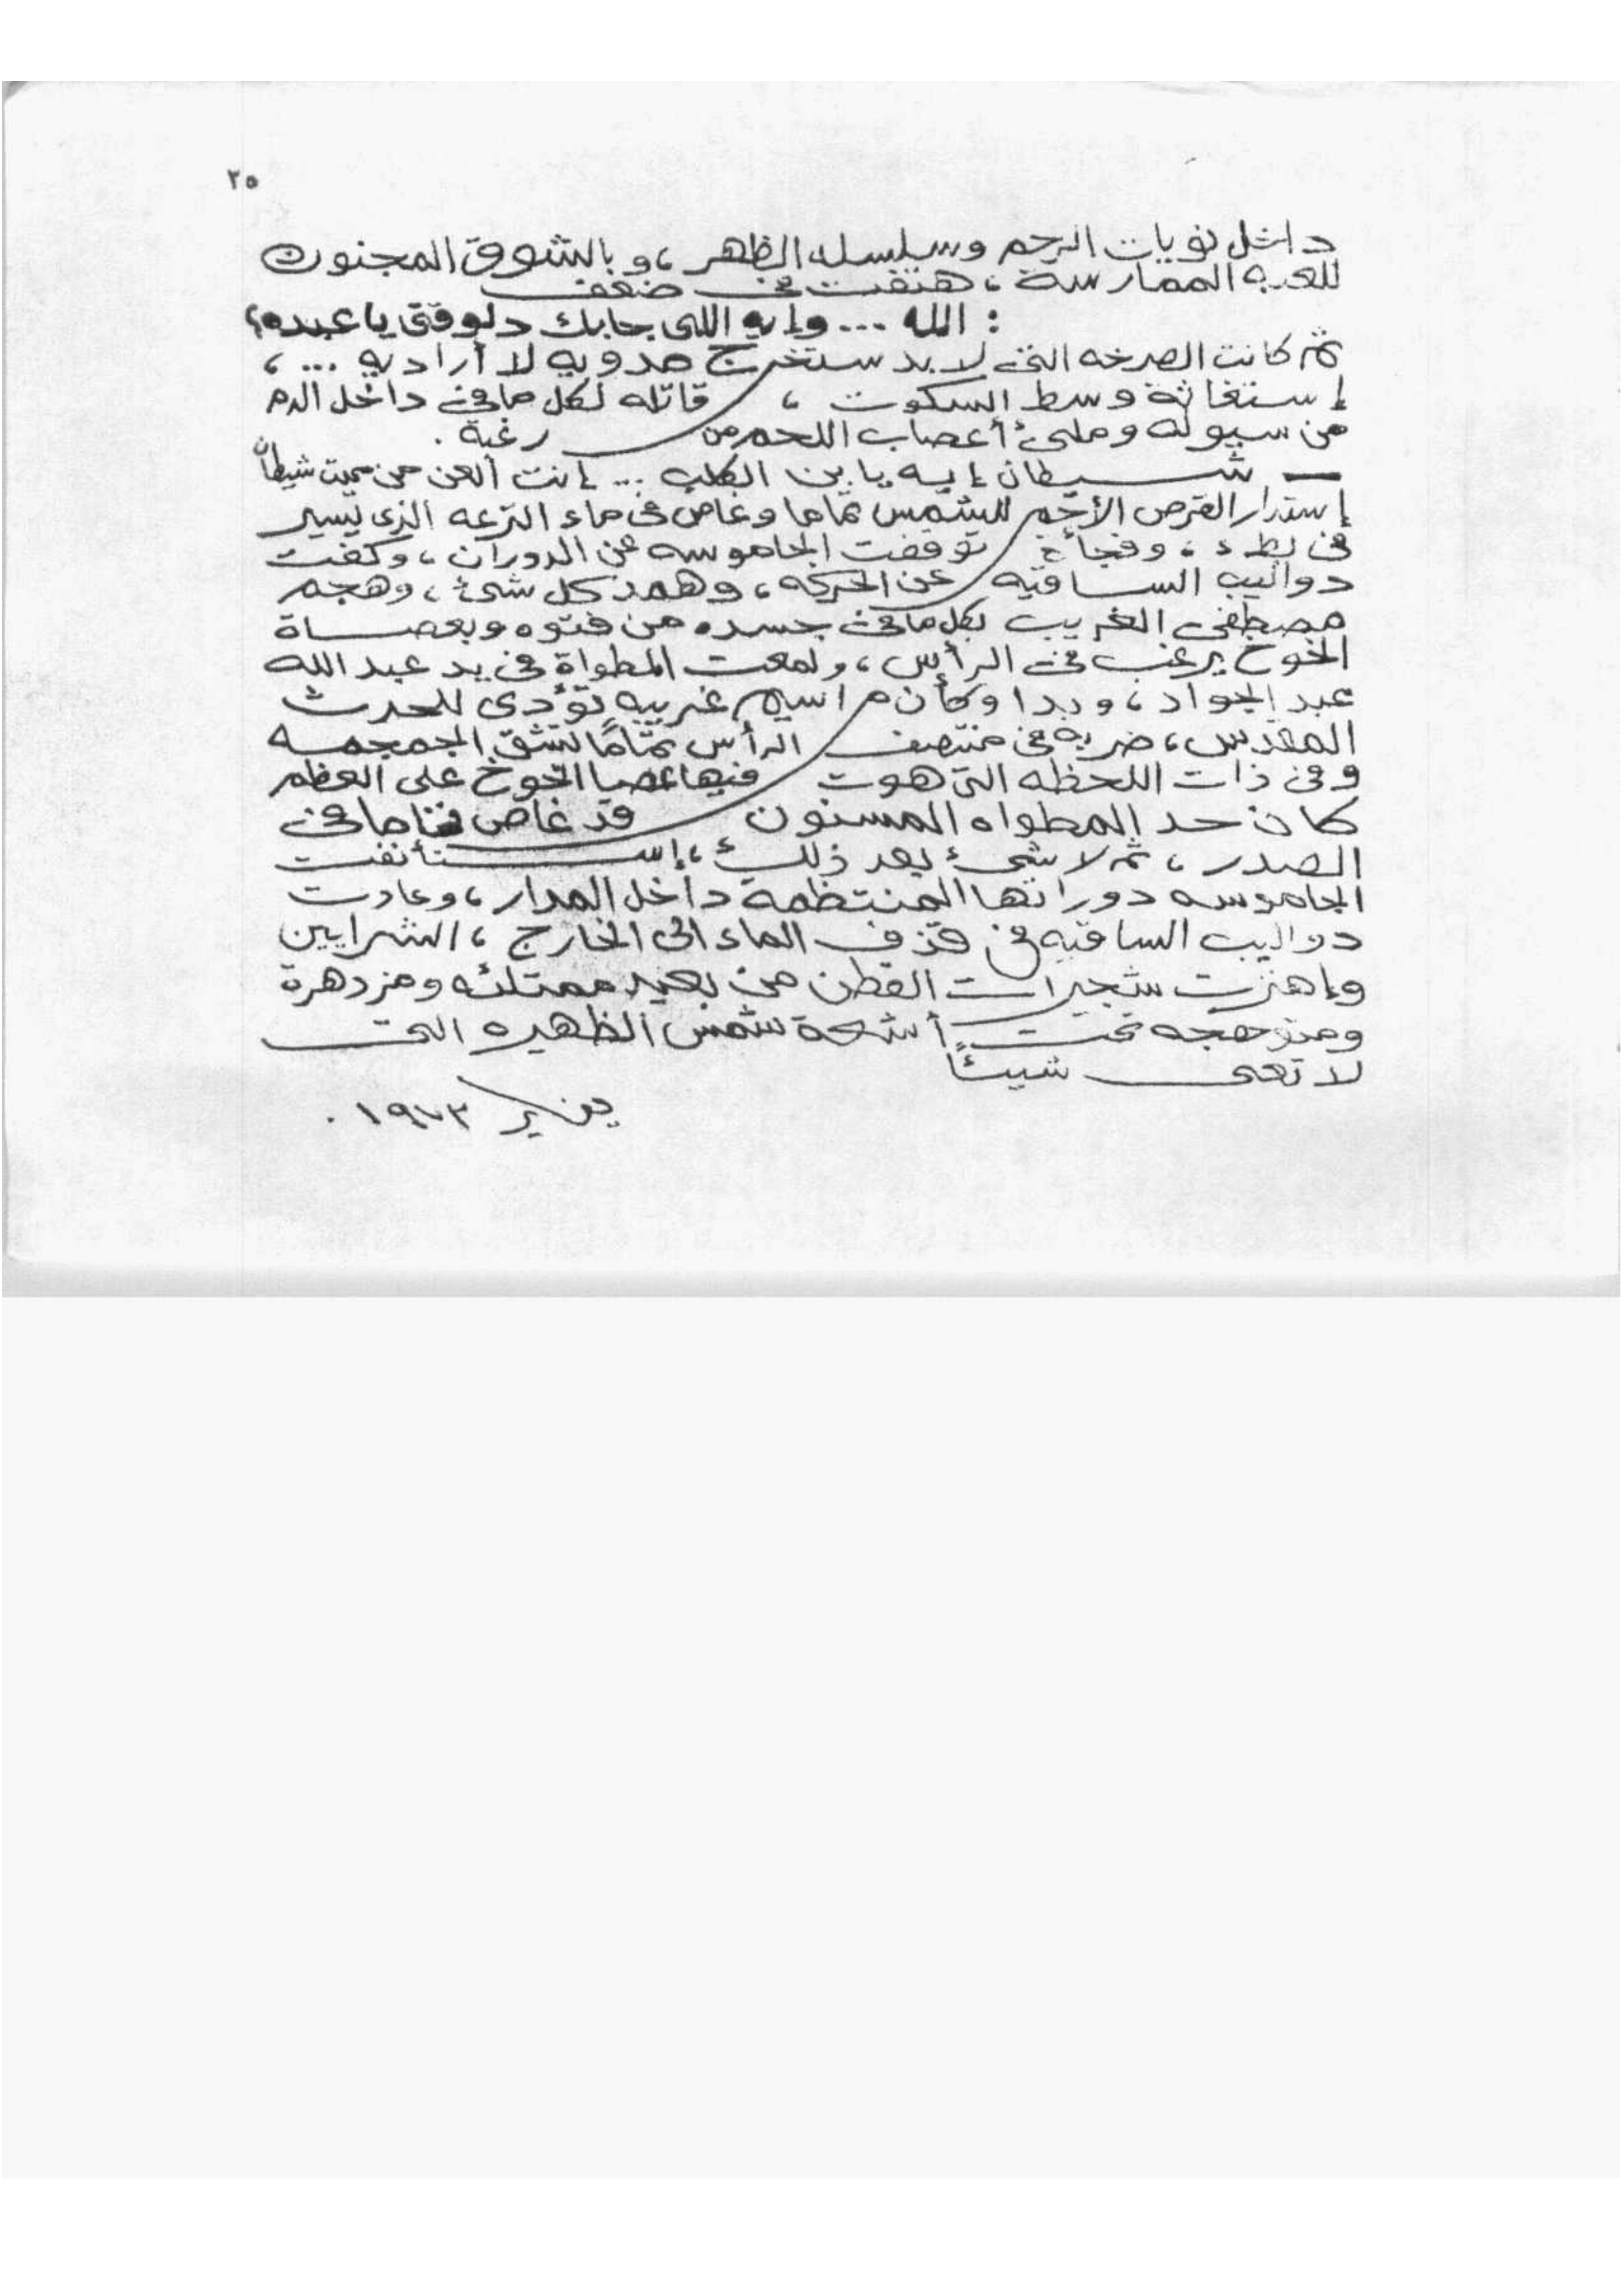 ٢٥
داخل نويات الرحم وسلسله الظهر ، وبالشوق المجنون
للعبه الممارسة ، هتفت في ضعف
: الله ... وإيه اللى جابك دلوقتى يا عبده؟
ثم كانت الصرخه التى لا بد ستخرج مدويه لا أراديه ... ،
إستغاثة وسط السكوت ، قاتله لكل مافى داخل الدم
من سيوله وملىء أعصاب اللحم من رغبة .
— شيطان إيه يا بن الكلب ... إنت ألعن من ميت شيطان
إستدار القرص الأحمر للشمس تماما وغاص فى ماء الترعه الذى يسير
فى بطء ، وفجأة توقفت الجاموسه عن الدوران ، وكفت
دواليب الساقيه عن الحركه ، وهمد كل شىء ، وهجم
مصطفى الغريب بكل مافى جسده من فتوه وبعصاة
الخوخ يرغب فى الرأس ، ولمعت المطواة فى يد عبد الله
عبد الجواد ، وبدا وكأن مراسيم غريبه تؤدى للحدث
المقدس ، ضربه فى منتصف الرأس تمامًا لتشق الجمجمه
وفى ذات اللحظه التى هوت فيها عصا الخوخ على العظم
كان حد المطواه المسنون قد غاص تماما فى
الصدر ، ثم لا شىء بعد ذلك ، إستأنفت
الجاموسه دوراتها المنتظمة داخل المدار ، وعادت
دواليب الساقيه فى قذف الماء الى الخارج ، الشرايين
وإهتزت شجيرات القطن من بعيد ممتلئه ومزدهرة
ومتوهجه تحت أشعة شمس الظهيره التى
لا تعى شيئاً
يناير ١٩٧٣ .